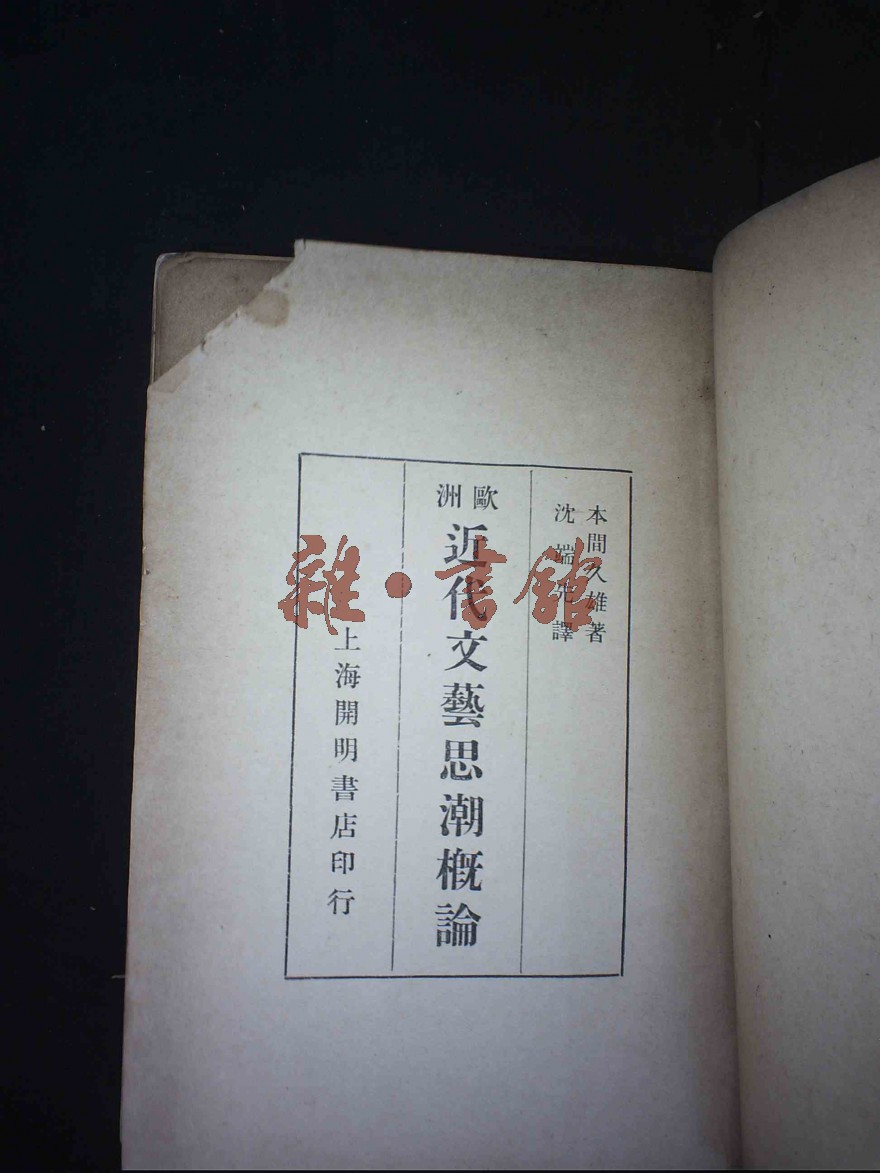 本間久雄著
沈端先譯
歐洲
近代文藝思潮概論
上海開明書店印行
雜·書館